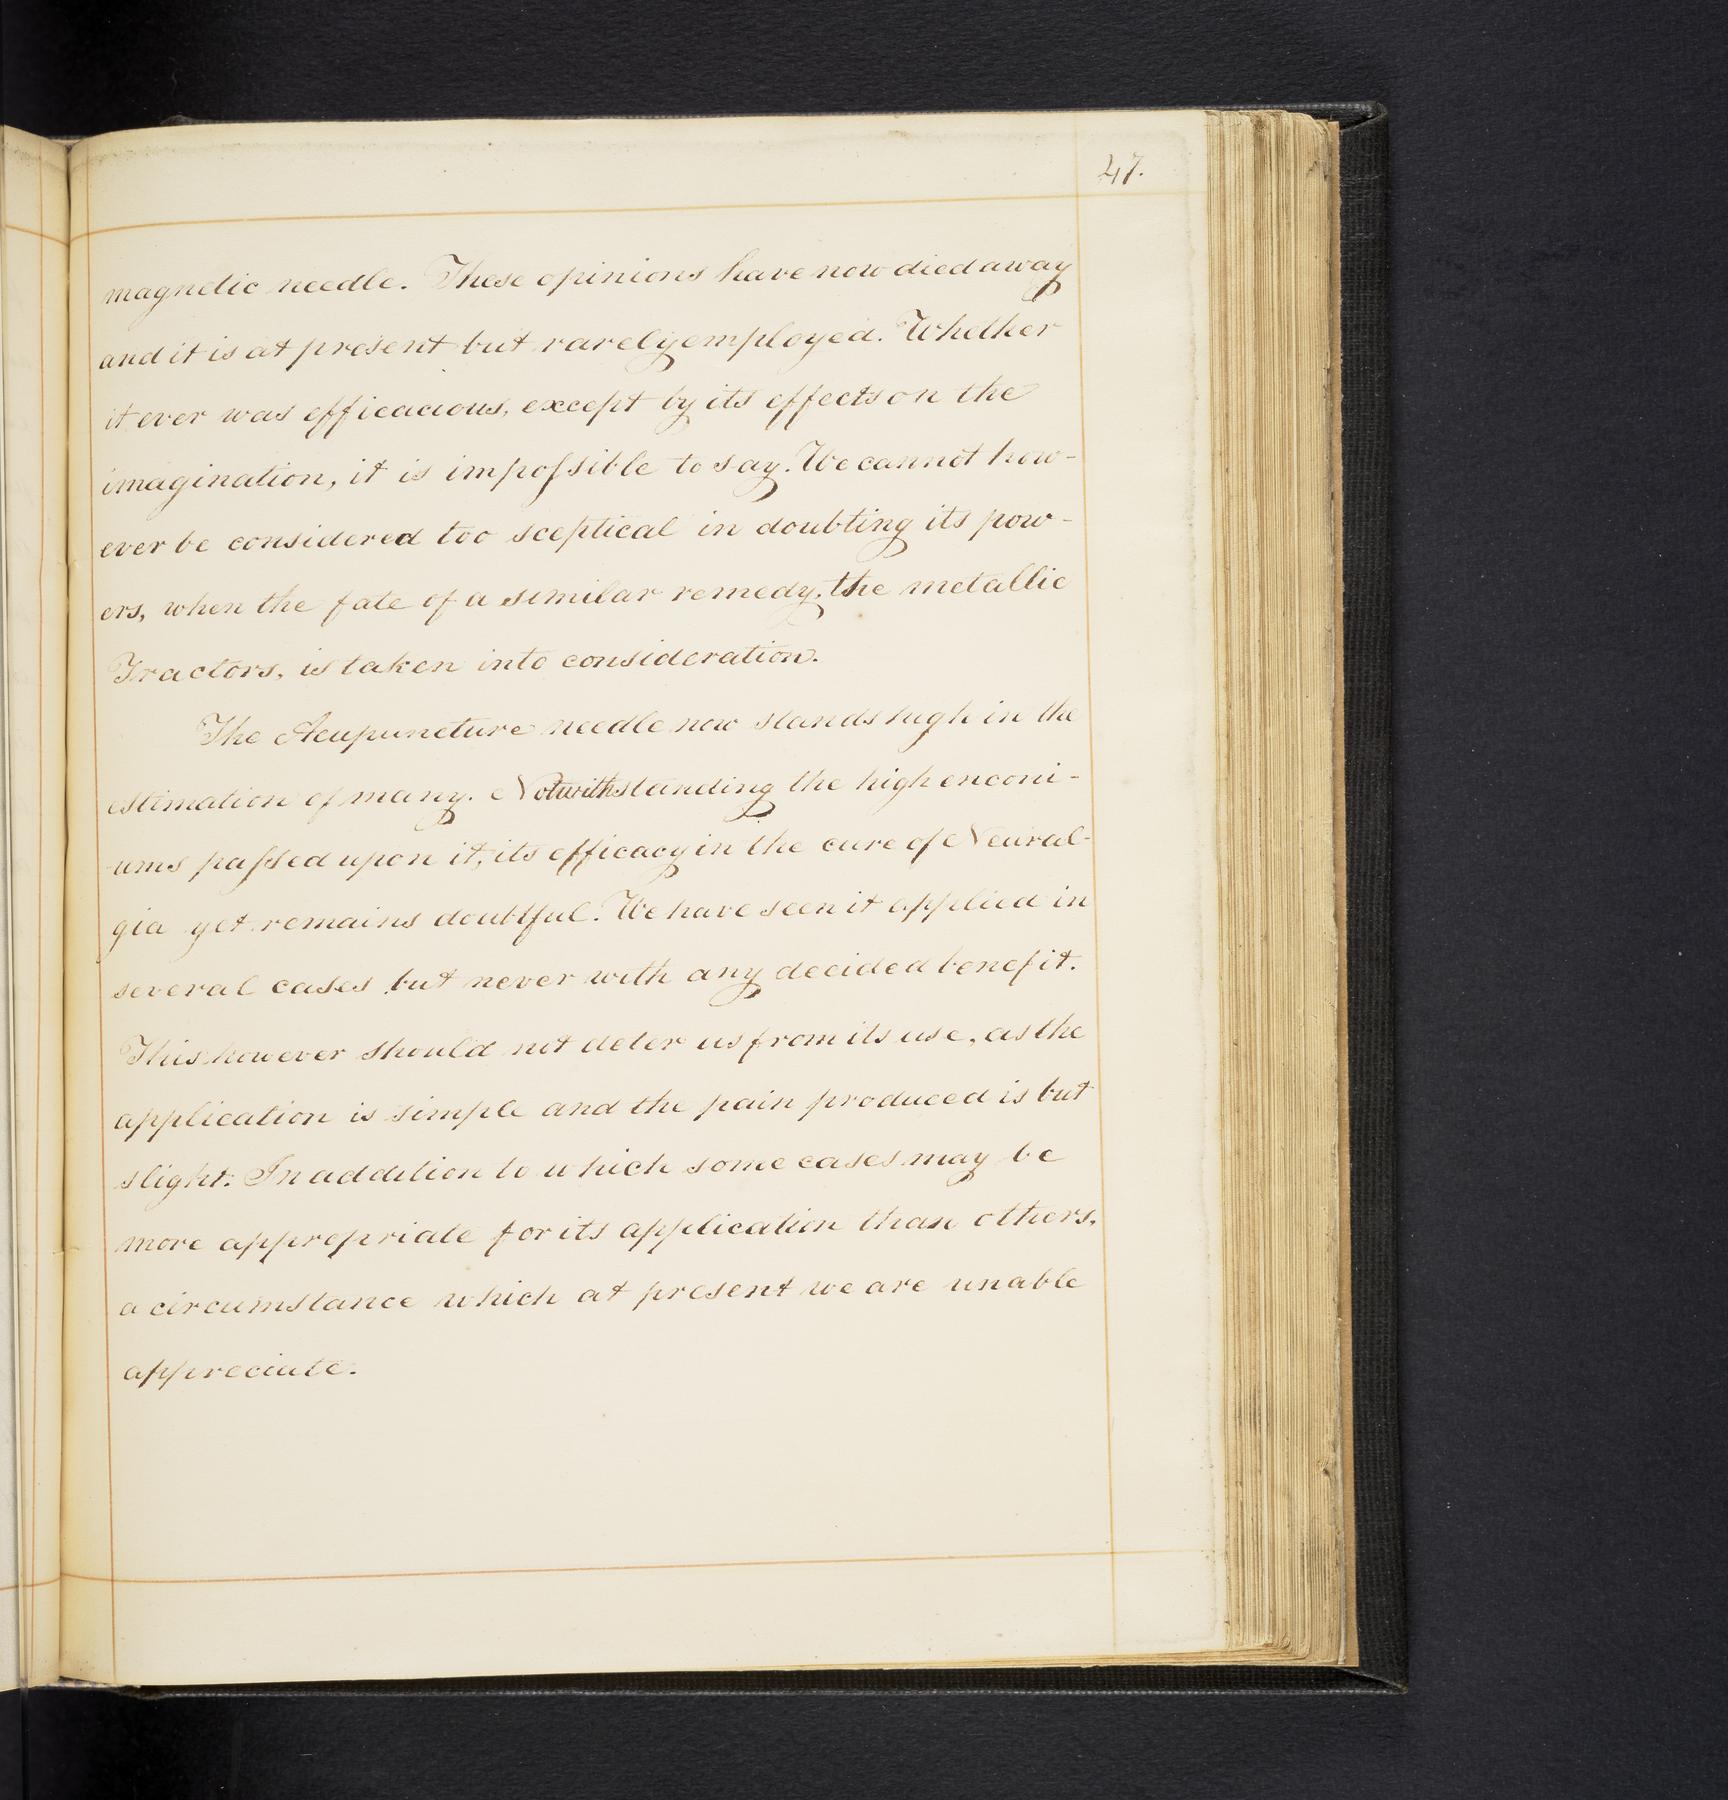 47.
magnetic needle. These opinions have now died away
and it is at present but rarely employed. Whether
it ever was efficacious, except by its effects on the
imagination, it is impoſsible to say. We cannot how-
ever be considered too sceptical in doubting its pow-
ers, when the fate of a similar remedy, the metallic
Tractors, is taken into consideration.
The Acupuncture needle now stands high in the
estimation of many. Notwithstanding the high enconi-
-ums paſsed upon it, its efficacy in the cure of Neural-
gia yet remains doubtful. We have seen it applied in
several cases but never with any decided benefit.
This however should not deter us from its use, as the
application is simple and the pain produced is but
slight. In addition to which some cases may be
more appropriate for its application than others,
a circumstance which at present we are unable
appreciate.